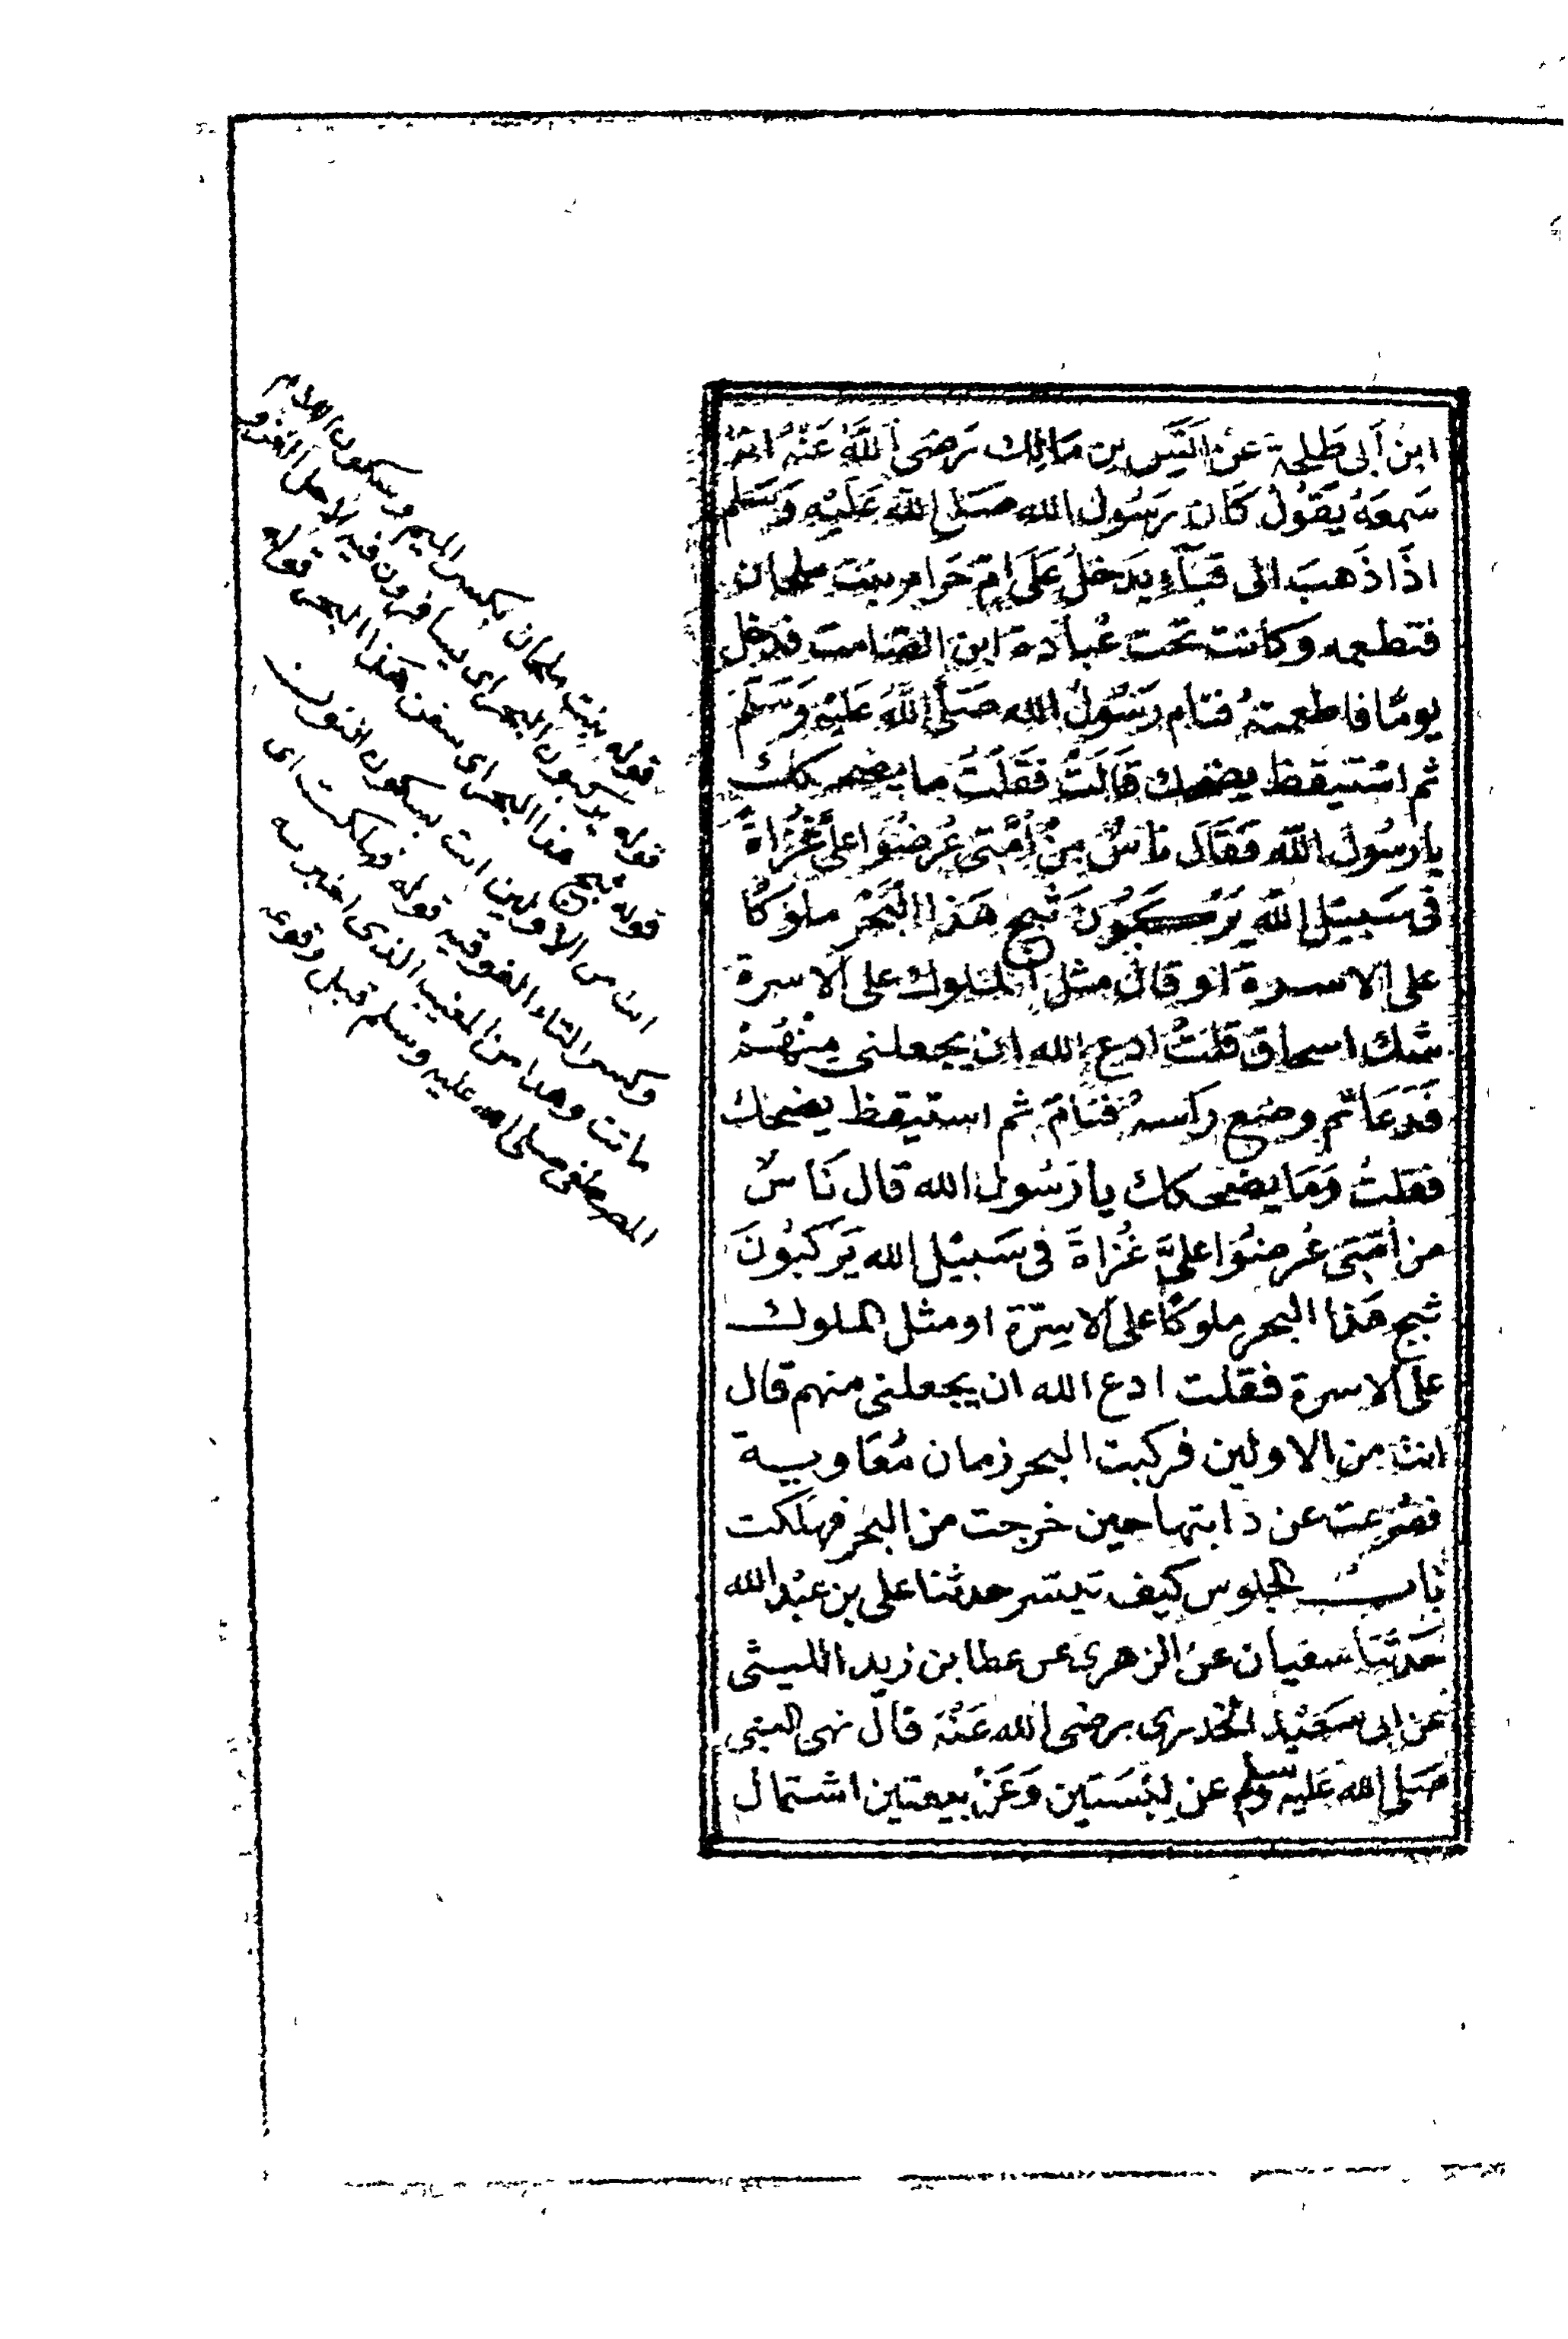 ابنُ اَبى طَلِحِة عَن اَنَسِ بن مَالِك رَضىَ اللَّهُ عَنْهُ انهُ
سَمِعَهُ يَقوُلُ كَانَ رَسُول الله صَلى اللهَ عَلَيْهِ وَسَلم
اذَا ذَهبَ الى قبَآءِ يَدخلُ عَلَى امّ حَرام بنتَ ملحان
فتطعمه وكانت تحت عُبادة ابن الصّامت فدخل
يومًا فاطعمتهُ فنام رَسُولُ الله صَلى اللَّهُ عَليْهِ وَسَلّم
ثم اسْتيقظ يضحك قالتْ فقلتُ ما يضحكك
يا رسُول اللَّه فقالَ ناسٌ مِنْ اُمَّتى عُرضُوا علىَّ غُزاةً
فى سَبيْل اللَّه يَرْكبُونَ ثبج هَذا البَحْر ملوكًا
على الاسرة اَوْ قالَ مثل الملوك على الاسرة
شك اسحاق قلتُ ادع الله ان يجعلنى مِنْهُمْ
فَدَعَا ثم وضع رَاسهُ فنَامَ ثم استيقظ يضحك
فقلتُ وَمَا يضحكك يا رَسُول الله قال نَاسٌ
من اُمّتى عُرضوُا علىَّ غُزاةً فى سَبيْل الله يَرْكبُونَ
ثبج هَذا البحر ملوكًا على الاسِرّة او مثل الملوك
على الاسرة فقلت ادع الله ان يجعلنى منهم قال
انت من الاولين فركبت البحر زمان مُعَاوية
فصُرعت عن دَابتها حين خرجت من البَحْر فهَلكت
بَابُ الجلوس كيف تيسّر حدثنا على بن عَبْد الله
حَدثنَا سفيان عن الزهرى عن عطا بن زيد الليثى
عن ابى سَعيْد الخدرى رضى الله عَنْه قال نهى النبى
صَلى الله عَليْه وسلم عن لِبْسَتَين وَعَنْ بيعتين اشتمال
قوله بنت ملحان بكسر الميم وسكون اللام
قوله يركبون البحر اى يسافرون فيه لاجل الغزو
قوله ثبج هذا البحر اى سفن هذا البحر قوله
انت من الاولين انت بسكون النون
وكسر التاء الفوقيه قوله فهلكت اى
ماتت وهذا من المغيب الذى اخبر به
المصطفى صلى الله عليه وسلم قبل وقوعه